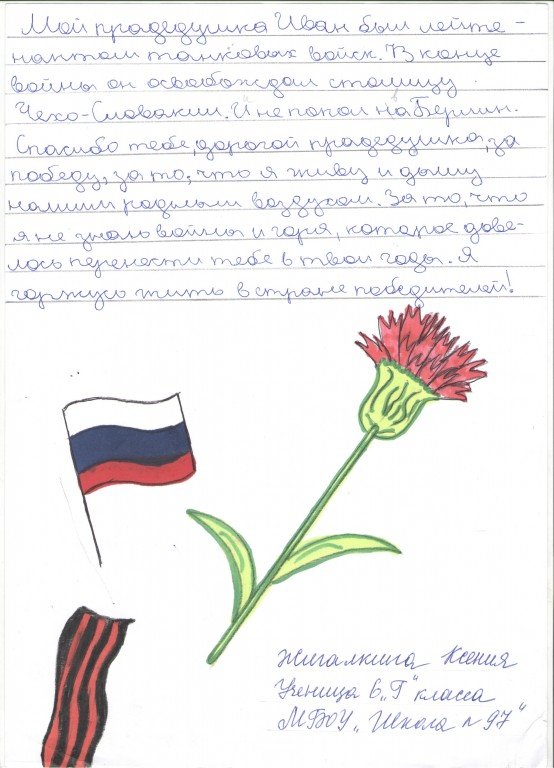 Мой прадедушка Иван был лейте-
нантом танковых войск. В конце
войны он освобождал столицу
Чехо-Словакии. И не попал на Берлин.
Спасибо тебе, дорогой прадедушка, за
победу, за то, что я живу и дышу
нашим родным воздухом. За то, что
я не знаю войны и горя, которое дове-
лось перенести тебе в твои годы. Я
горжусь жить в стране победителей!
Жигалкина Ксения
Ученица 6 „Г“ класса
МБОУ „Школа № 97“